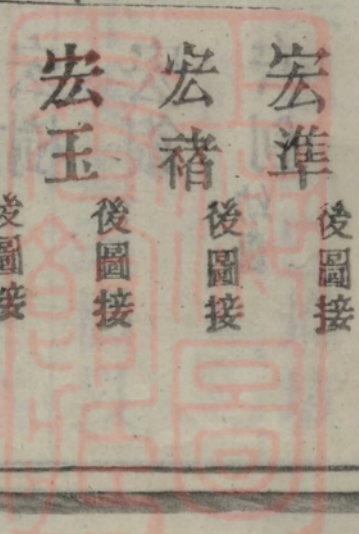 宏準
後圖接
宏禇
後圖接
宏玉
後圖接
後圖接